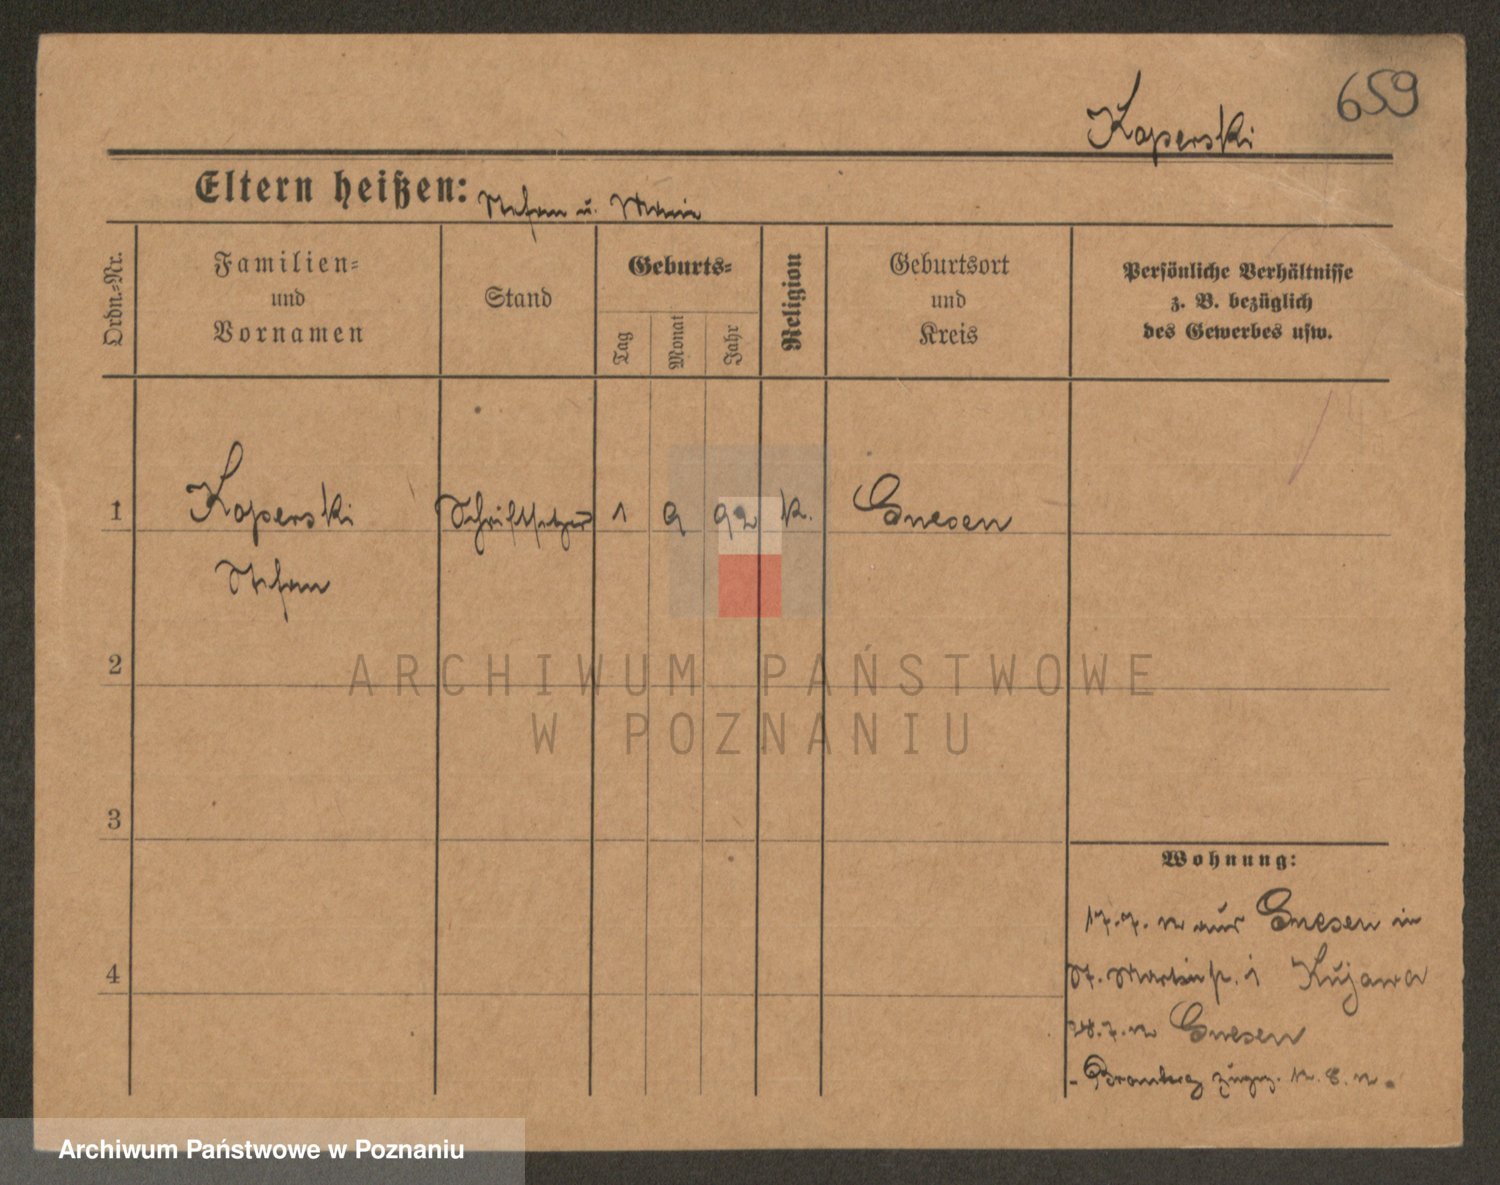 659
Koperski
Eltern heißen: Stefan u. Marie
Ordn.-Nr.
Familien-
und
Vornamen
Stand
Geburts-
Tag
Monat
Jahr
Religion
Geburtsort
und
Kreis
Persönliche Verhältnisse
z. B. bezüglich
des Gewerbes usw.
1 Koperski Schriftsetzer 1 9 92 k. Gnesen
Stefan
2
ARCHIWUM PAŃSTWOWE
W POZNANIU
3
Wohnung:
17.7. aus Gnesen in
St. Martinstr. Kujawa
4
28.7. Gnesen
- Bromberg 12.8.
Archiwum Państwowe w Poznaniu